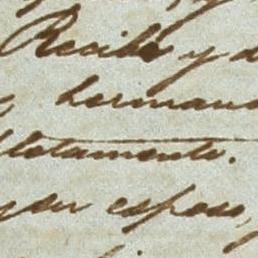 Recibe y d
y hermano
letamente.
y su esposo,